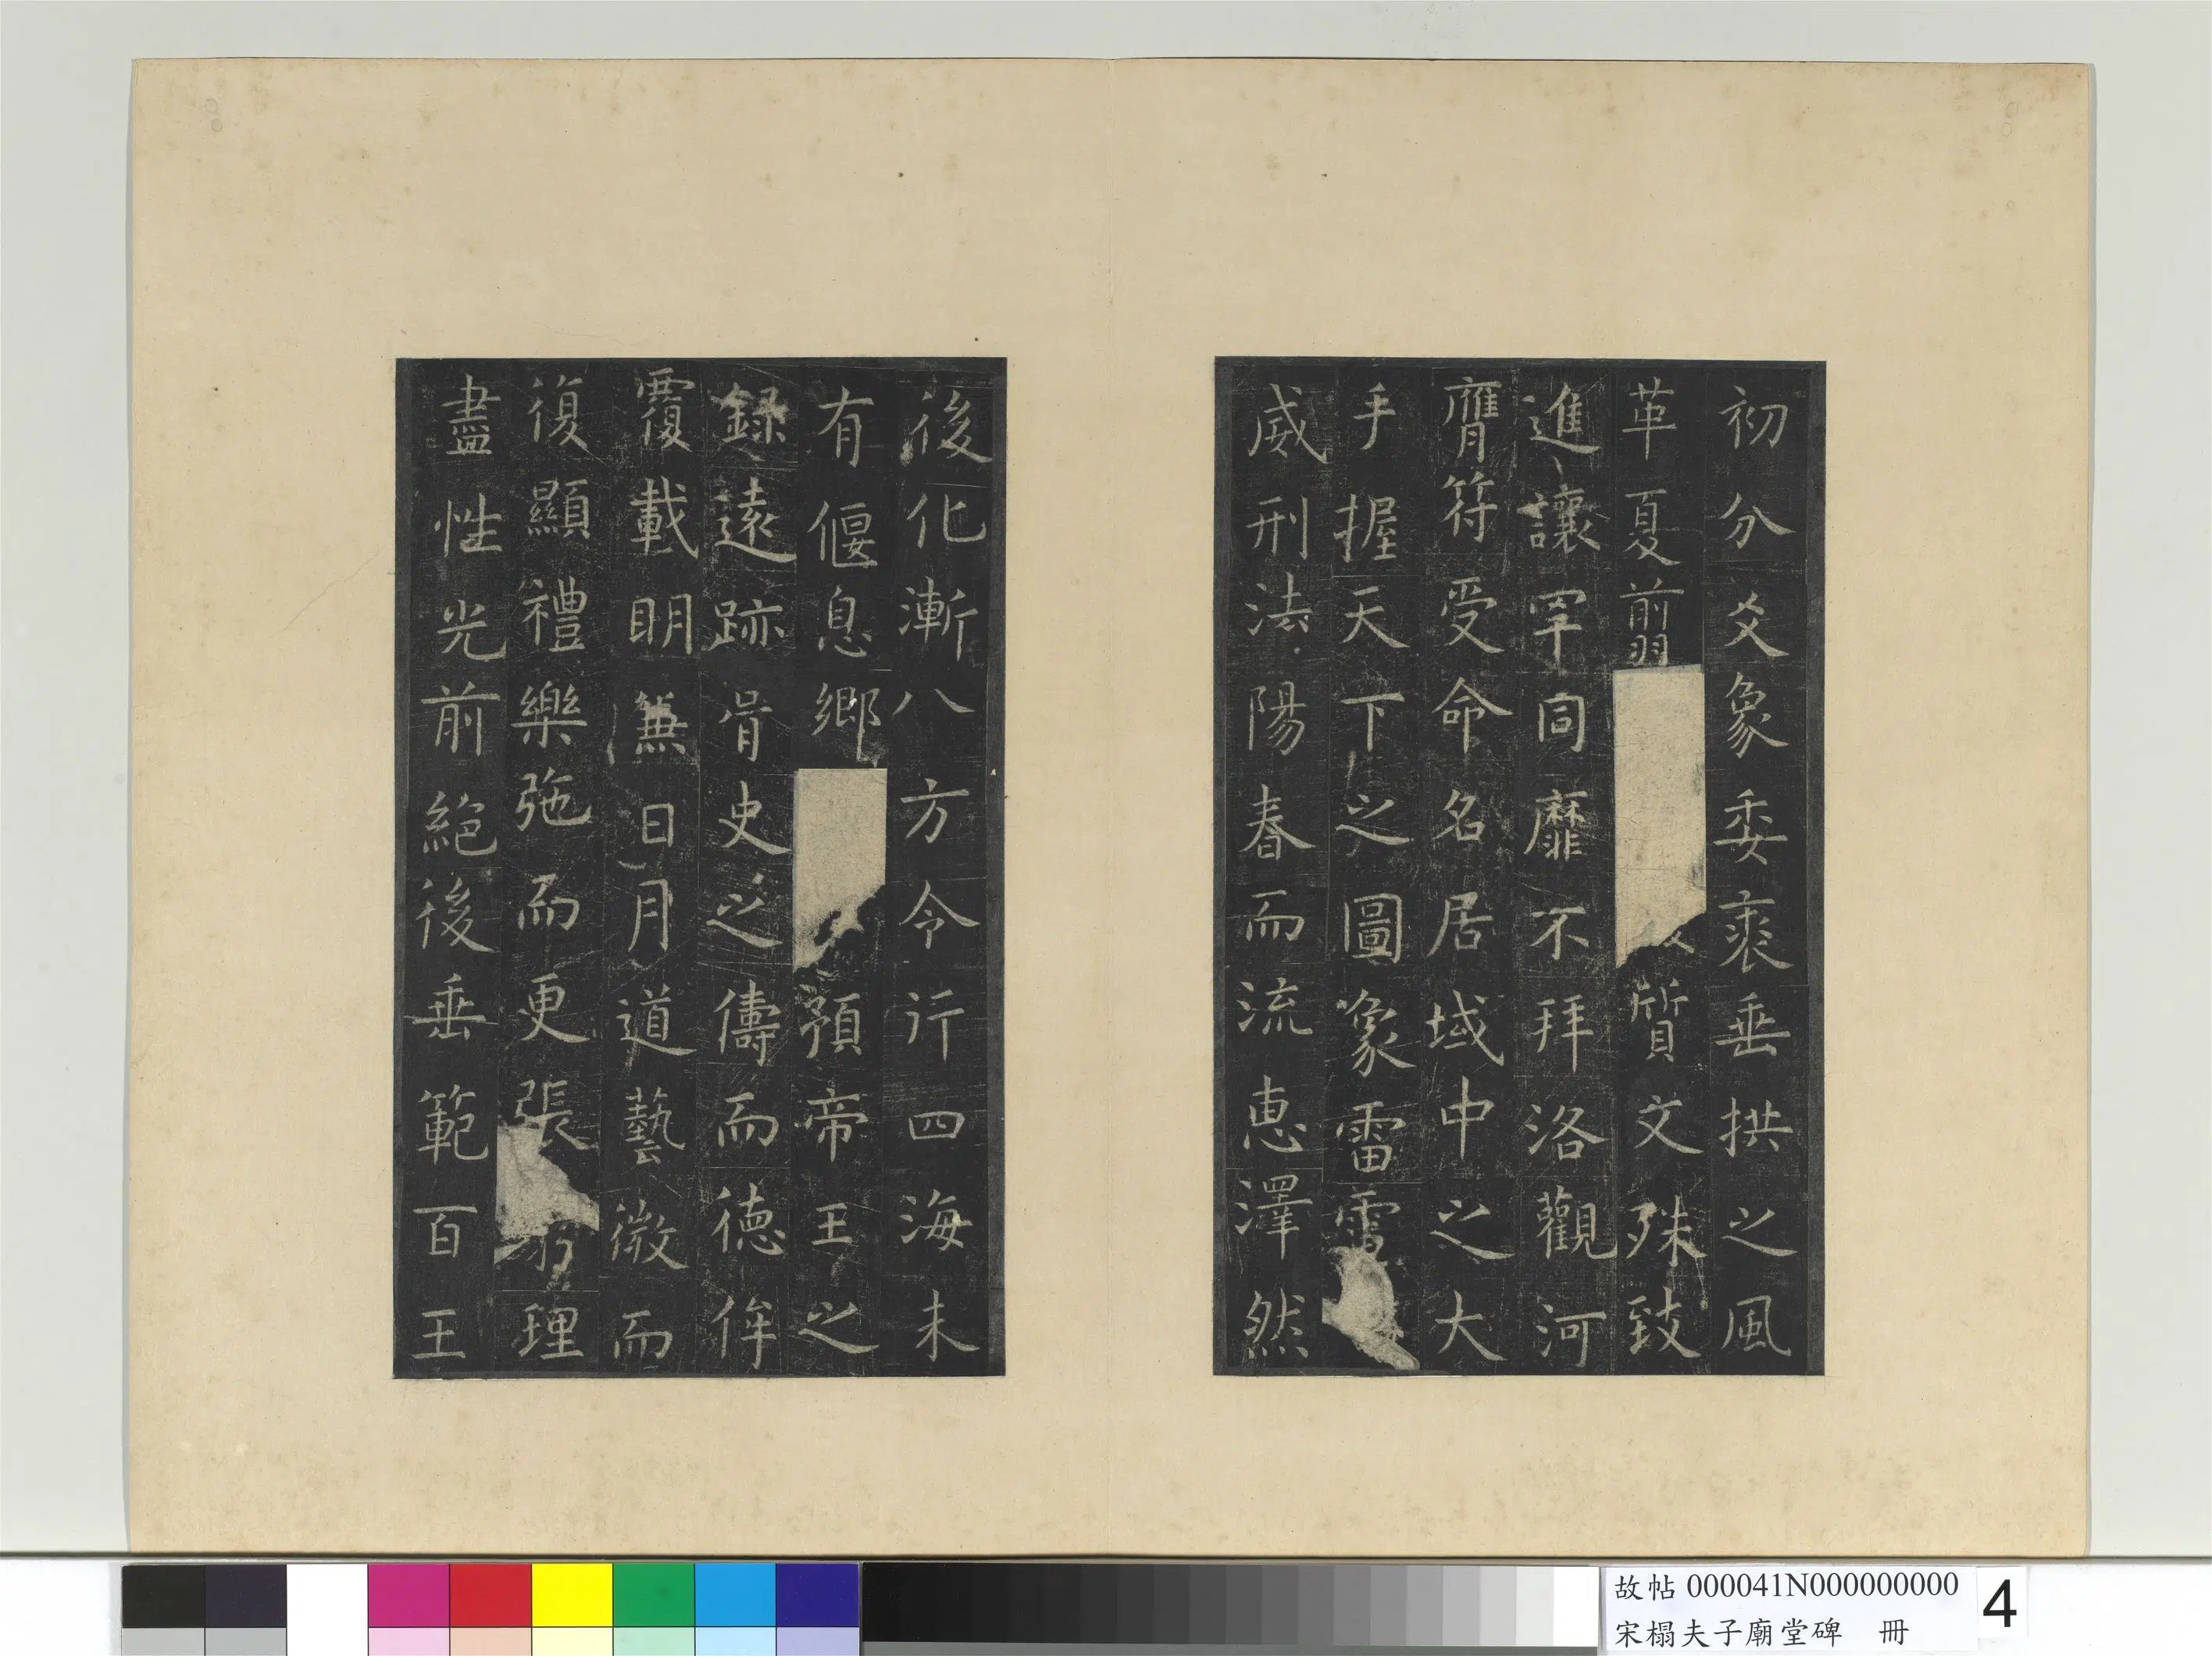 初分爻象委裘垂拱之風
革夏前翦質文殊致
進讓罕同靡不拜洛觀河
膺符受命名居域中之大
手握天下之圖象雷電
威刑法陽春而流恵澤然
後化漸八方令行四海未
有偃息鄉預帝王之
録遠跡胥史之儔而德侔
覆載明兼日月道藝微而
復顯禮樂弛而更張窮理
盡性光前絕後垂範百王
故帖 000041N000000000
宋榻夫子廟堂碑 冊
4